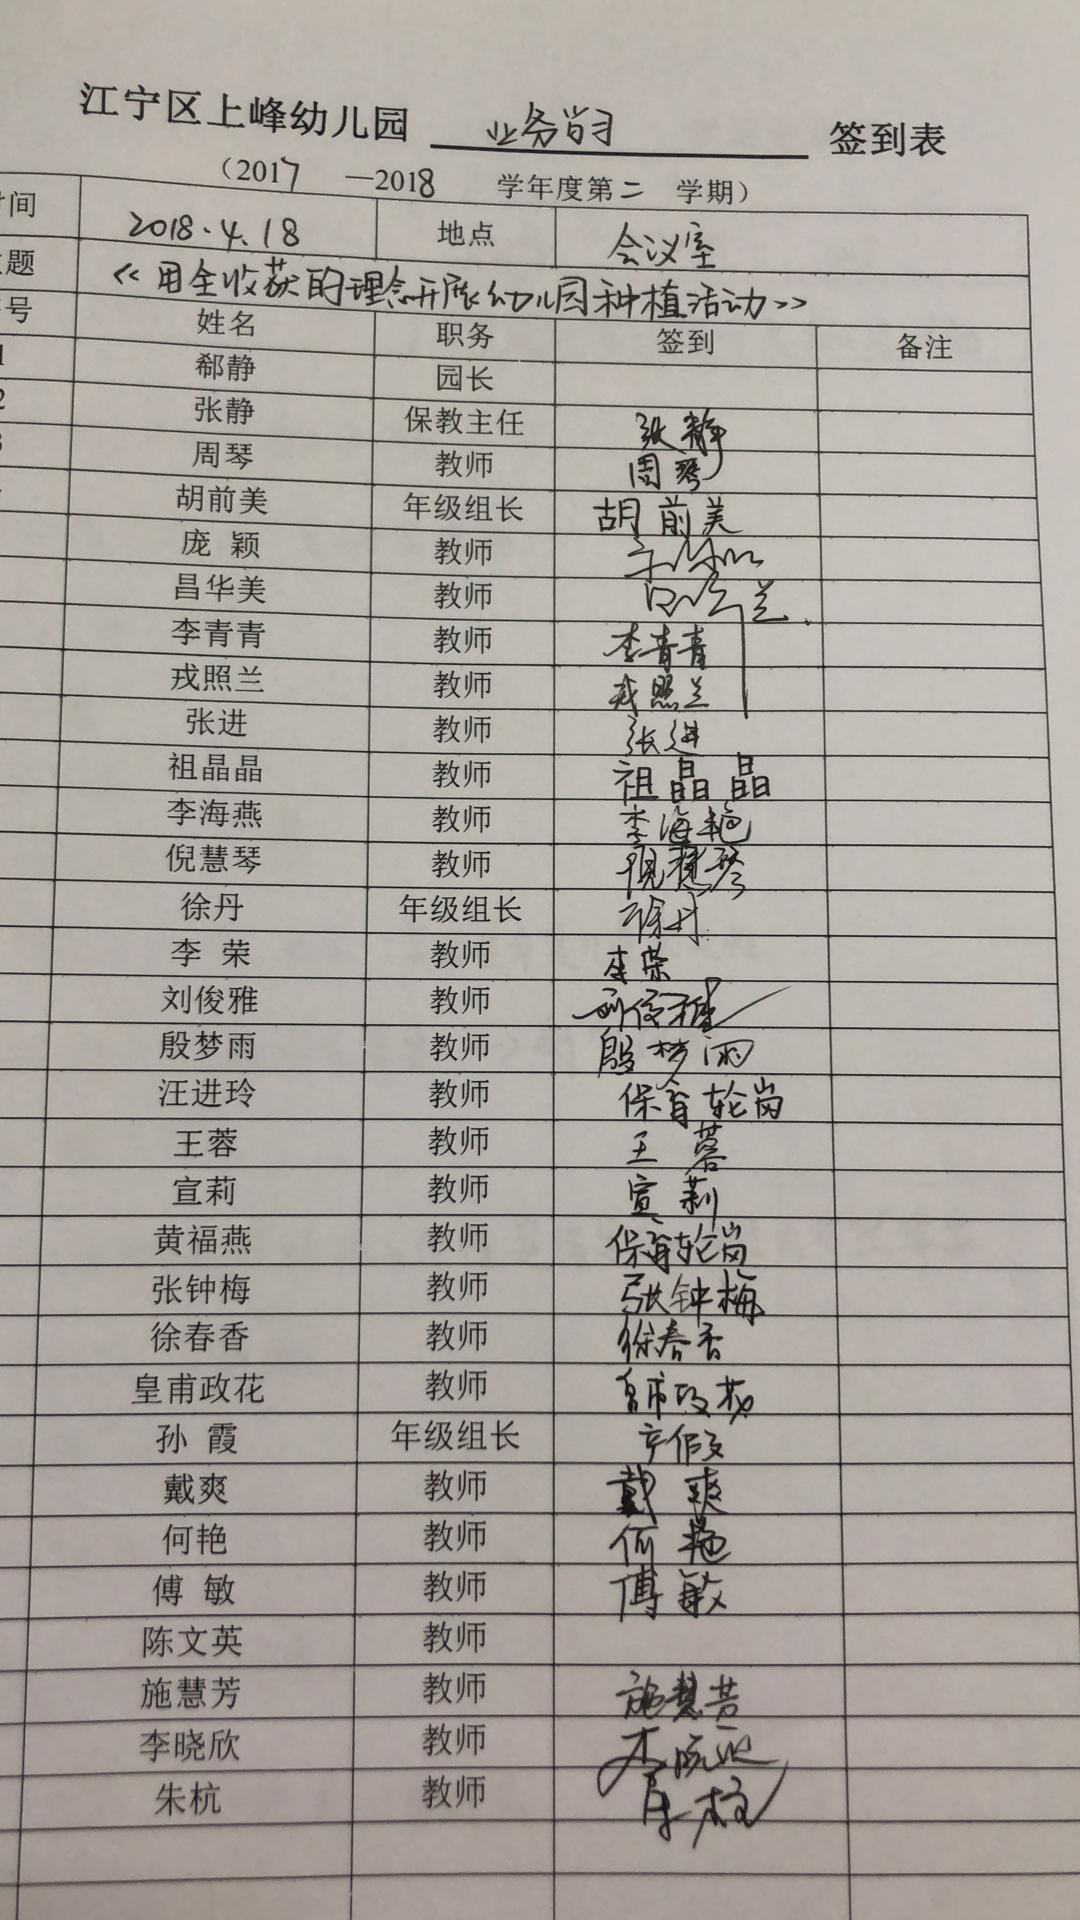 江宁区上峰幼儿园 业务学习 签到表
（2017 —2018 学年度第二 学期）
间 2018.4.18 地点 会议室
题 《用全收获的理念开展幼儿园种植活动》
号 姓名 职务 签到 备注
1 郗静 园长
2 张静 保教主任 张静
3 周琴 教师 周琴
胡前美 年级组长 胡前美
庞 颖 教师
昌华美 教师
李青青 教师 李青青
戎照兰 教师 戎照兰
张进 教师 张进
祖晶晶 教师 祖晶晶
李海燕 教师 李海艳
倪慧琴 教师 倪慧琴
徐丹 年级组长 徐丹
李 荣 教师 李荣
刘俊雅 教师 刘俊雅
殷梦雨 教师 殷梦雨
汪进玲 教师 保育轮岗
王蓉 教师 王蓉
宣莉 教师 宣莉
黄福燕 教师 保育轮岗
张钟梅 教师 张钟梅
徐春香 教师 徐春香
皇甫政花 教师 皇甫政花
孙 霞 年级组长 产假
戴爽 教师 戴爽
何艳 教师 何艳
傅 敏 教师 傅敏
陈文英 教师
施慧芳 教师 施慧芳
李晓欣 教师
朱杭 教师